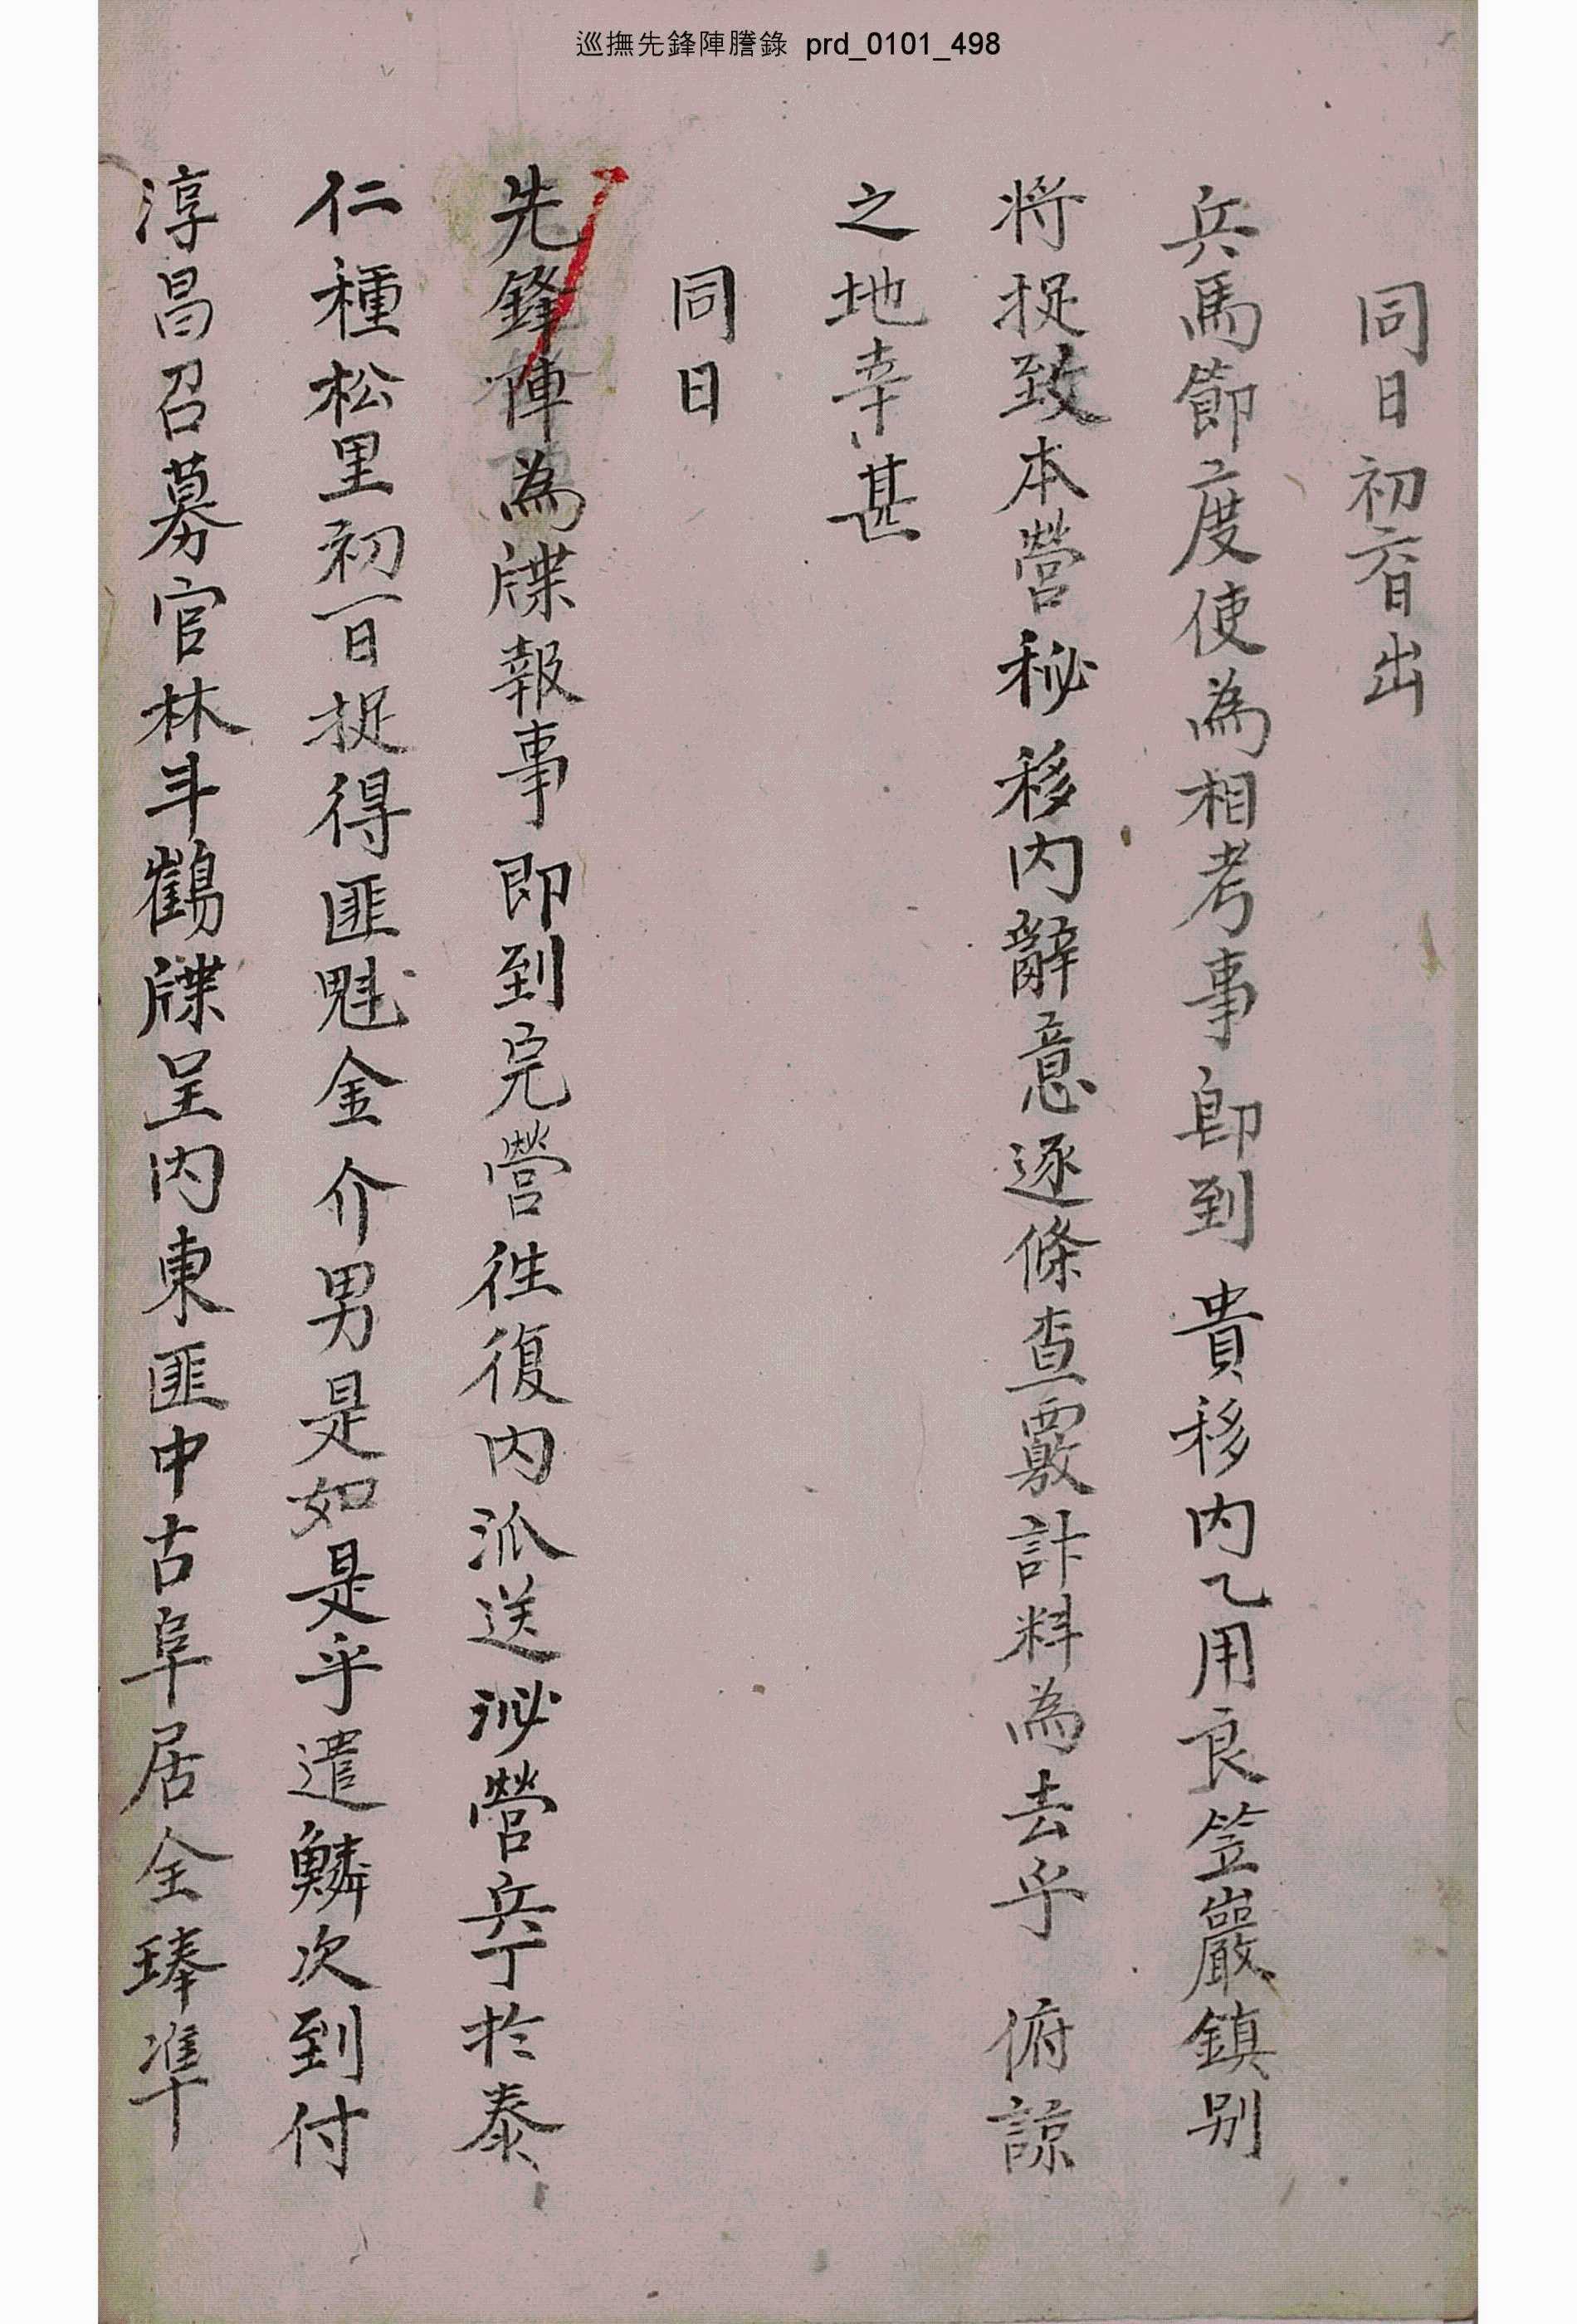 巡撫先鋒陣謄錄 prd_0101_498
同日初六日出
兵馬節度使為相考事卽到 貴移內乙用良笠巖鎮別
将捉致本營秘移內辭意逐條查覈計料為去乎 俯諒
之地幸甚
同日
先鋒陣為牒報事即到完營徃復內派送沁營兵丁於泰
仁種松里初一日捉得匪魁金介男是如是乎遣鱗次到付
淳昌召募官林斗鶴牒呈內東匪中古阜居全琫準